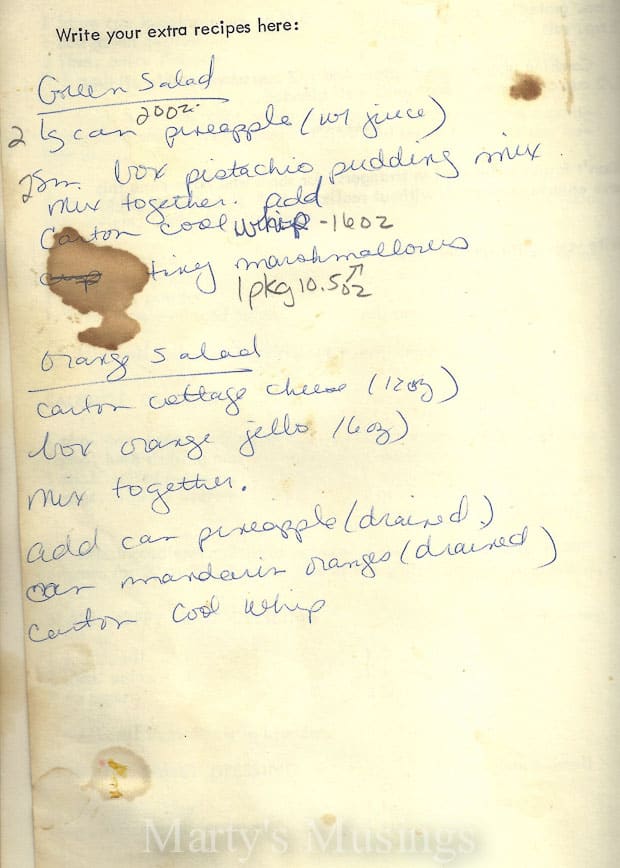 Write your extra recipes here:
Green Salad
20oz.
2 can pineapple (w/ juice)
2 Sm. box pistachio pudding mix
mix together. add
Carton cool whip - 16oz
tiny marshmallows
1 pkg 10.5oz
Orange Salad
carton cottage cheese (12oz)
box orange jello (6oz)
mix together.
add can pineapple (drained)
can mandarin oranges (drained)
carton cool whip
Marty's Musings